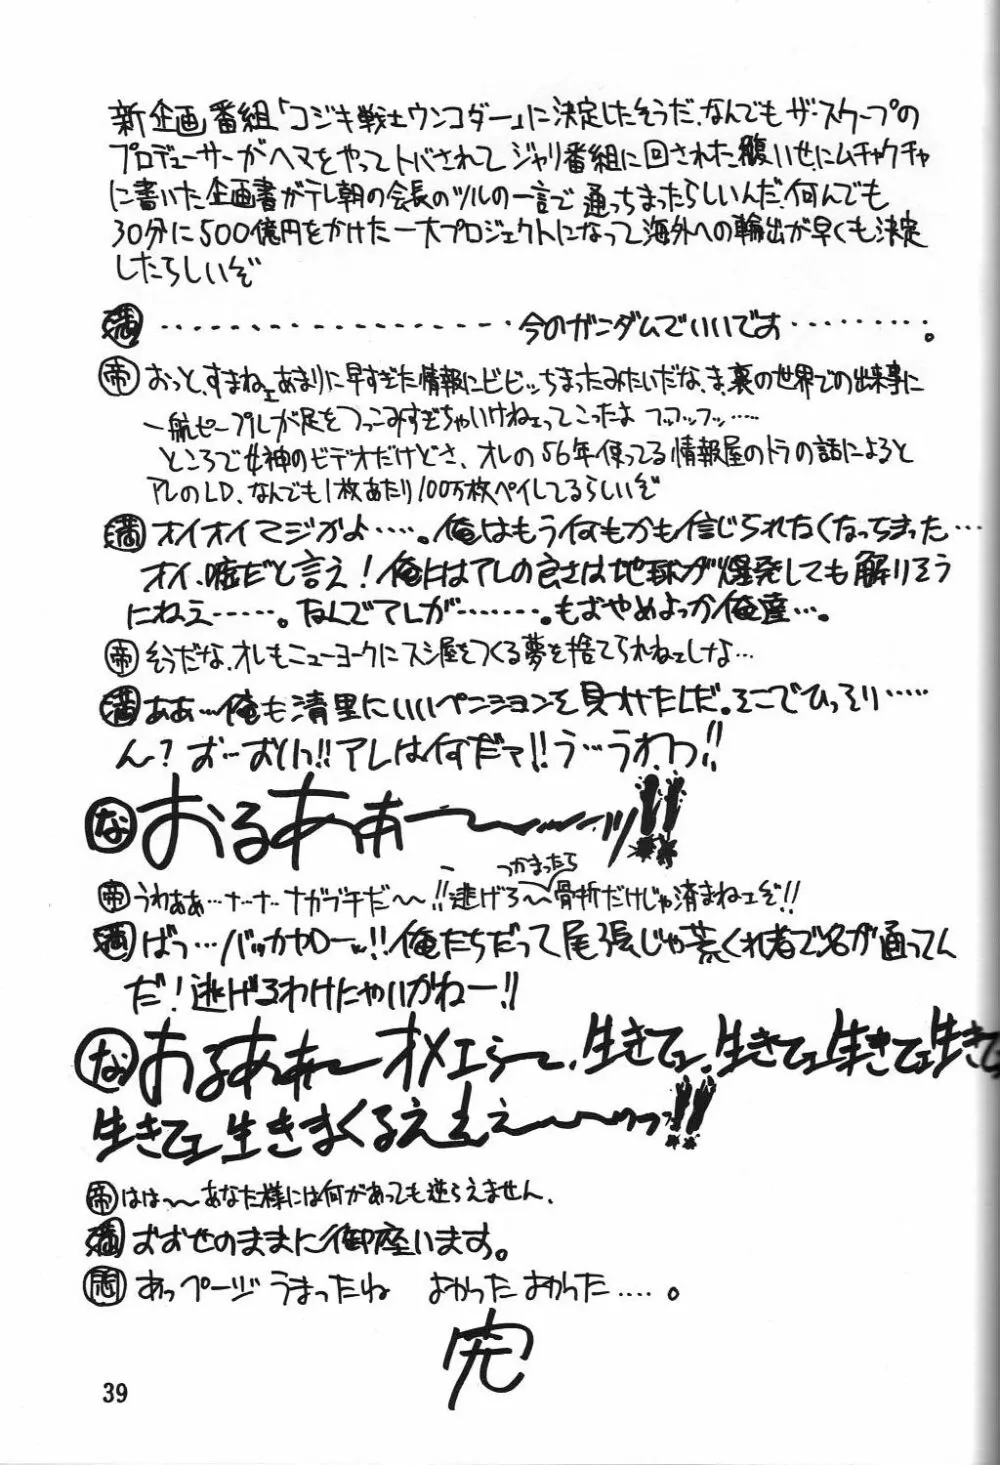 新企画番組「コジキ戦士ウンコダー」に決定したそうだ、なんでもザ・スクープの
プロデューサーがヘマをやってトバされてジャリ番組に回された腹いせにムチャクチャ
に書いた企画書がテレ朝の会長のツルの一言で通っちまったらしいんだ、何んでも
30分に500億円をかけた一大プロジェクトになって海外への輸出が早くも決定
したらしいぞ
満 ・・・・・・・・・・・・・・・・・・・今のガンダムでいいです・・・・・・・・・。
帝 おっと、すまねェあまりに早すぎた情報にビビッちまったみたいだな、ま、裏の世界での出来事に
一般ピープルが足をつっこみすぎちゃいけねェってこったよ フッフッフッ……
ところで女神のビデオだけどさ、オレの56年使ってる情報屋のトラの話によると
アレのLD、なんでも1枚あたり100万枚ペイしてるらしいぞ
満 オイオイマジかよ……。俺はもう何もかも信じられなくなっちまった…
オイ、嘘だと言え！俺にはアレの良さは地球が爆発しても解りそう
にねえ……。なんでアレが………。もおやめよっか俺達…。
帝 そうだな、オレもニューヨークにスシ屋をつくる夢を捨てられねェしな…
満 ああ…俺も清里にいいペンションを見つけたしだ。そこでひっそり……
ん？お…おいっ!!アレは何だァ!!う…うわっ!!
な おるあぁー〜〜ッ!!
帝 うわああ…ナ…ナ…ナガブチだ〜〜!!逃げろ〜〜つかまったら骨折だけじゃ済まねェぞ!!
満 ばっ…バッカヤローッ!!俺たちだって尾張じゃ荒くれ者で名が通ってん
だ！逃げるわけにゃいかねー!!
な おるあぁ〜オメェら〜、生きてェ、生きてェ生きてェ生きて
生きてェ生きまくるえぇぇ〜〜ッっ!!
帝 はは〜〜あなた様には何があっても逆らえません、
満 おおせのままに御座います。
あっページうまったね よかったよかった……。
完
39